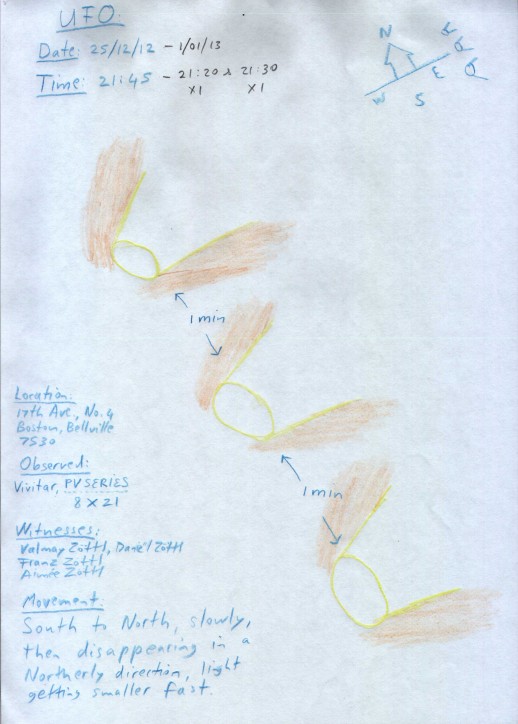 UFO.
Date: 25/12/12 - 1/01/13
Time: 21:45 - 21:20 & 21:30
x1 x1
N
W S E
1 min
1 min
Location:
17th Ave., No. 4
Boston, Bellville
7530
Observed:
Vivitar, PV SERIES
8 x 21
Witnesses:
Valmay Zöttl, Dare'l Zöttl
Franz Zöttl
Aimée Zöttl
Movement:
South to North, slowly,
then disappearing in a
Northerly direction, light
getting smaller fast.